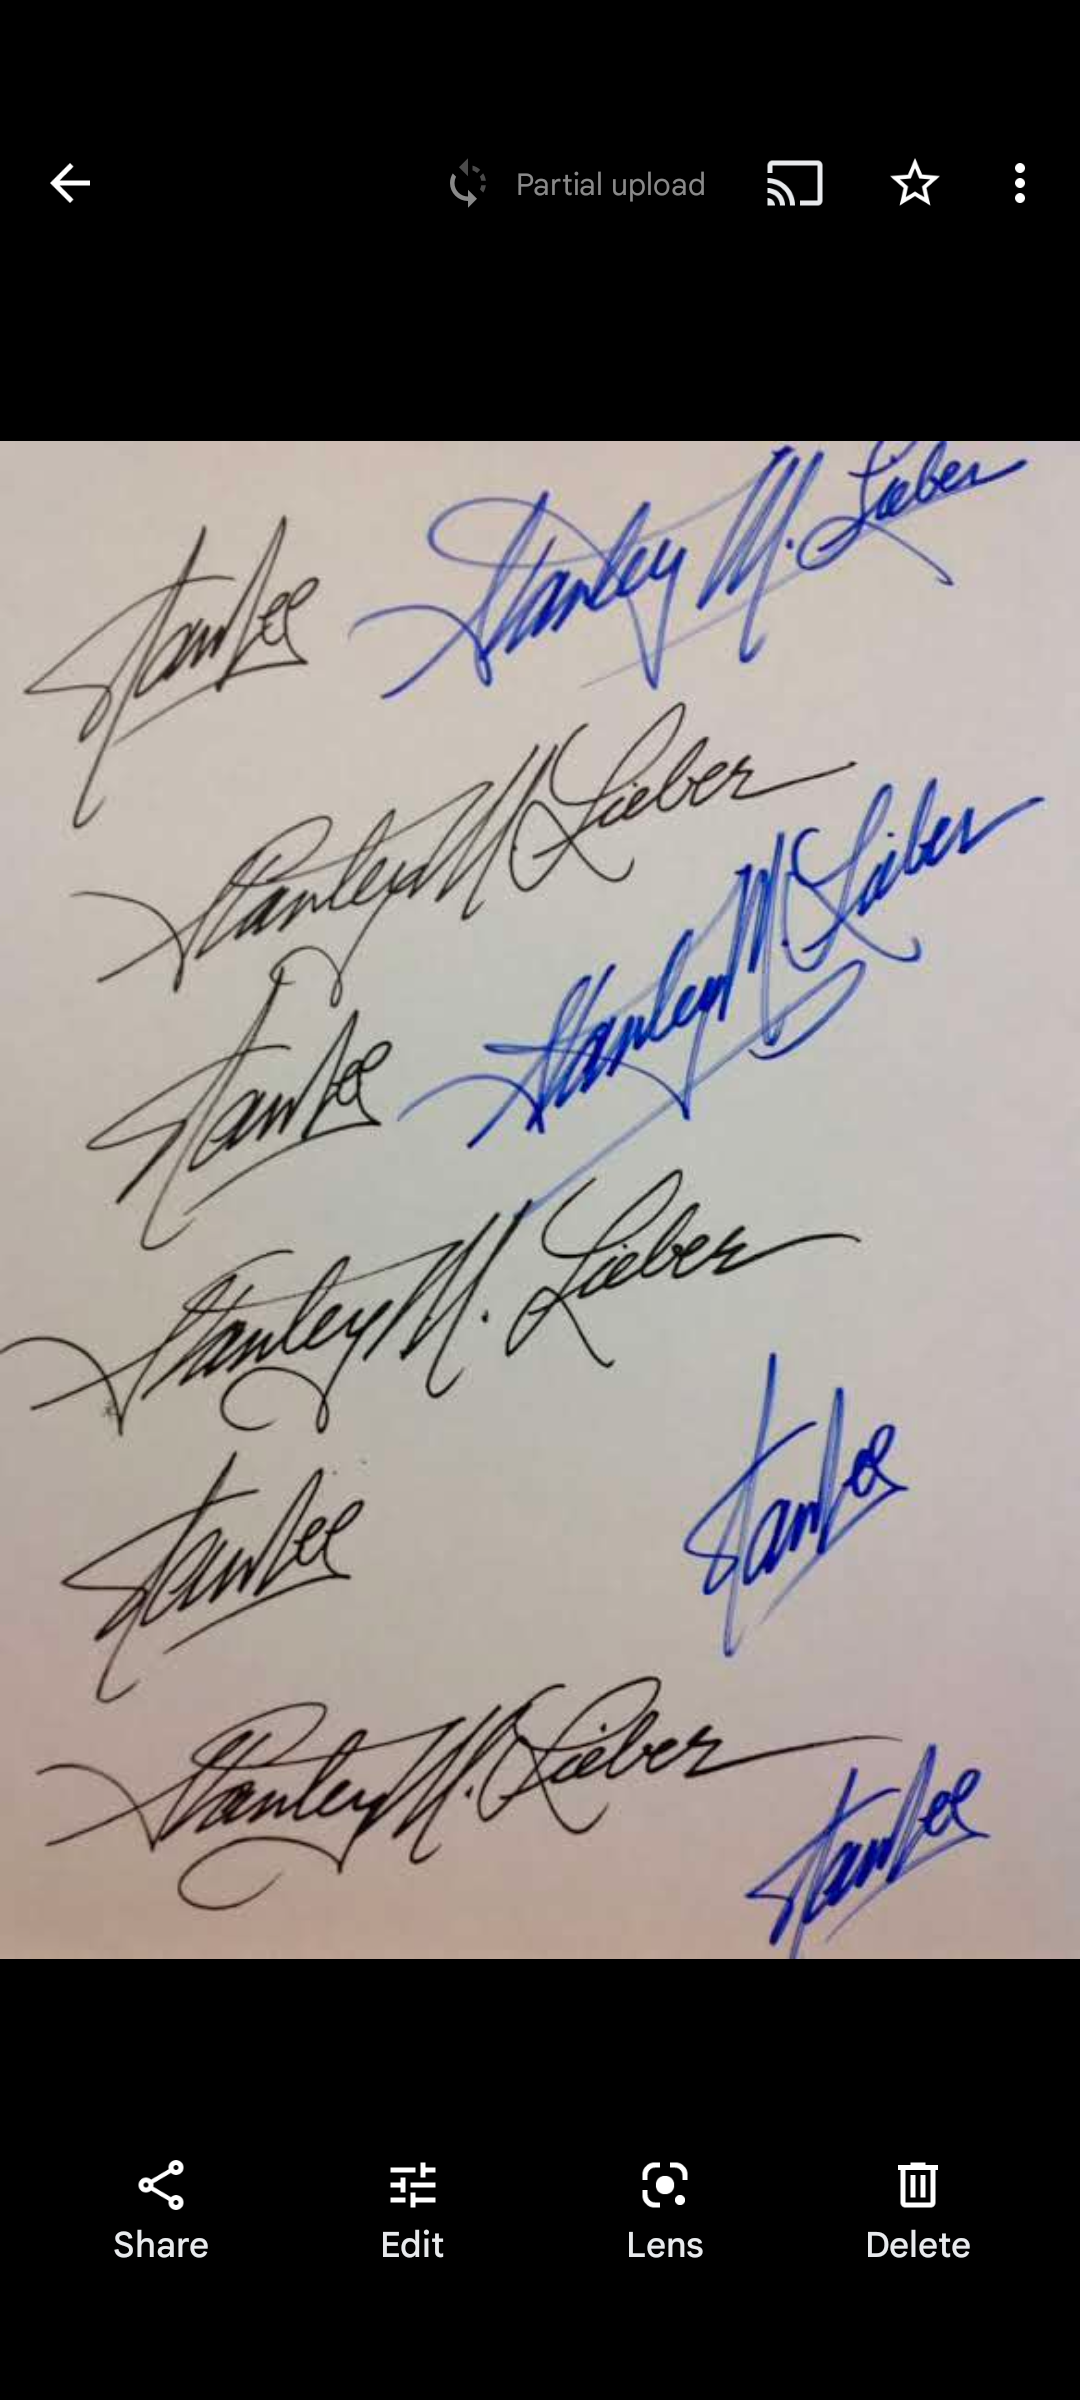 Partial upload
Stan Lee
Stanley M. Lieber
Stanley M. Lieber
Stanley M. Lieber
Stan Lee
Stanley M. Lieber
Stan Lee
Stan Lee
Stanley M. Lieber
Stan Lee
Share Edit Lens Delete